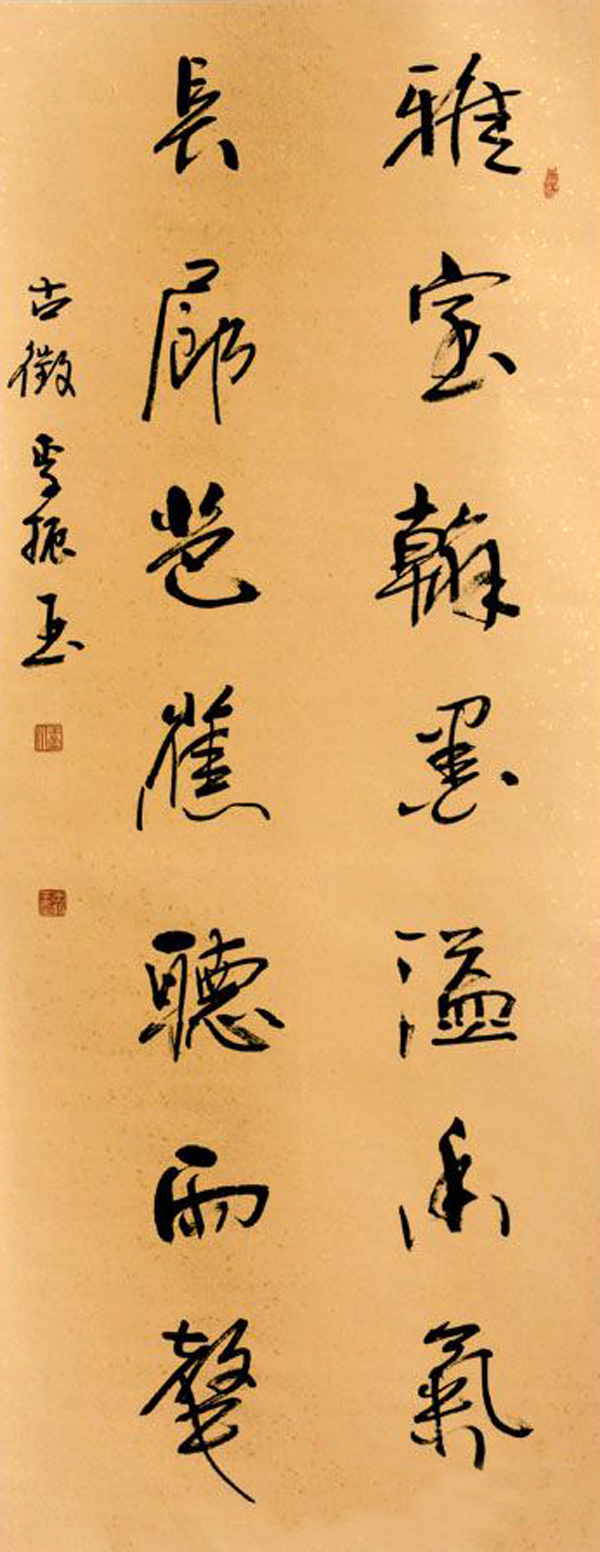 雅室翰墨溢香氣
長廊芭蕉聽雨聲
古徽李振玉